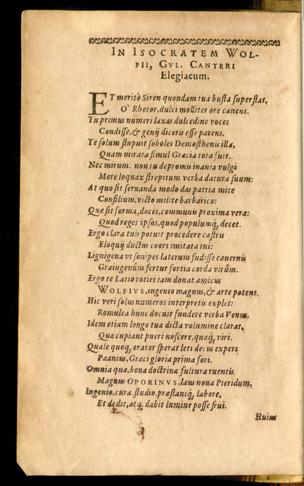 IN ISOCRATEM WOL-
FII, GVL. CANTERI
Elegiacum.
ET meritò Siren quondam tua busta superstat,
O' Rhetor, dulci molliter ore canens.
Tu primus numeri laxas dulcedine voces
Condisse, & genij diceris esse parens.
Te solum stupuit soboles Demosthenis illa,
Quam mirata simul Græcia tota fuit.
Nec mirum. non tu depromis inania vulgi
More loquax strepitum verba datura suum:
At quo sit seruanda modo das patria mite
Consilium, victo milite barbarico:
Quæ sit forma, doces, communi proxima veræ:
Quod reges ipsos, quod populumq́; decet.
Ergo clara tuis potuit procedere castris
Eloquij ductu coors imitata tui:
Lignigena vt sonipes laterum fudisse cauernis
Graiugenûm fertur fortia corda virûm.
Ergo te Latio toties iam donat amicus
WOLFIVS, ingenio magnus, & arte potens.
Hic veri solus numeros interpretis explet:
Romulea hunc docuit fundere verba Venus.
Idem etiam longo tua dicta volumine clarat,
Qua cupiant pueri noscere, quaq́;, viri.
Quale quoq́;, orator sperat leti decus expers
Paanius, Græci gloria prima fori.
Omnia quæ, bona doctrina fultura ruentis
Magnus OPORINVS, laus noua Pieridum,
Ingenio, cura, studio, præstansq́;, labore,
Et dedit, atq́;, dabit lumine posse frui.
Huius